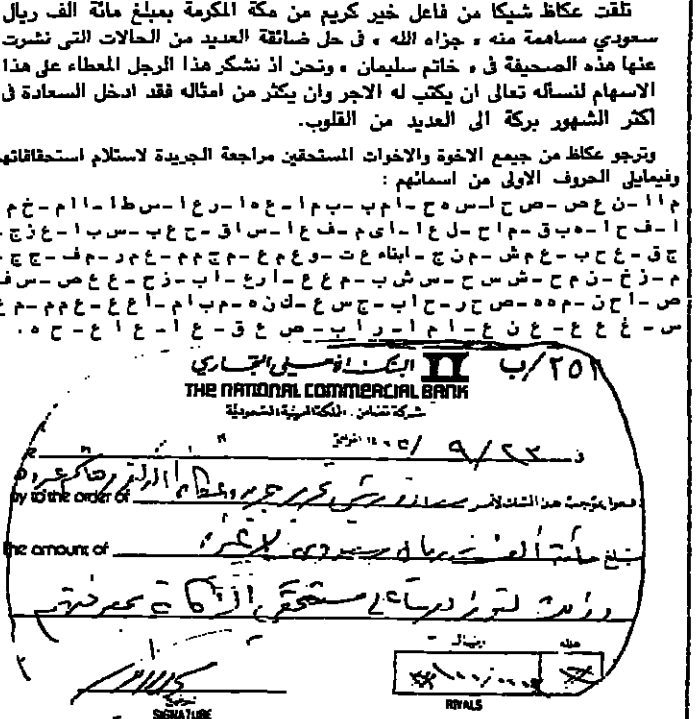 تلقت عكاظ شيكا من فاعل خير كريم من مكة المكرمة بمبلغ مائة الف ريال
سعودي مساهمة منه ، جزاه الله ، فى حل ضائقة العديد من الحالات التى نشرت
عنها هذه الصحيفة فى ، خاتم سليمان ، ونحن اذ نشكر هذا الرجل المعطاء على هذا
الاسهام لنسأله تعالى ان يكتب له الاجر وان يكثر من امثاله فقد ادخل السعادة فى
اكثر الشهور بركة الى العديد من القلوب.
وترجو عكاظ من جيمع الاخوة والاخوات المستحقين مراجعة الجريدة لاستلام استحقاقاتهم
وفيمايلى الحروف الاولى من اسمائهم :
م ا ا - ن ع ص - ص ح ا - س ه ح - ا م ب - ب م ا - ع ه ا - ر ع ا - س ط ا - ا ا م - خ م
ا - ف ح ا - ه ب ق - م ا ح - ل ع ا - ا ى م - ف ع ا - س ا ق - ح ع ب - س ب ا - ع ز ج
ج ق - ع ح ب - ع م ش - م ن ج - ابناء ع ت - و ع م ع - م ج م م - ع م ر - م ف - ج ج
م - ز خ - ن م ح - ش س ح - س ش ب - م ع ع - ا ر ع - ا ب - ز ح - ع ع ص - س ف
ص - ا ح ن - م ه ه - ص ح ر - ح ا ب - ج س ع - ك ن ه - م ب ا م - ا ع ع - ع م م - م ع
س - غ ع ع - ع ن ع - ا م ا - ر ا ب - ص ع ق - ع ا - ع ا ع - ح ه .
٢٥٢/ب البنك الأهلي التجاري
THE NATIONAL COMMERCIAL BANK
شركة تضامن . المملكة العربية السعودية
في ٢٣ / ٩ / ١٤٠
ادفعوا بموجب هذا الشيك لأمر
y to the order of
the amount of مبلغ مائة ألف ريال سعودي لا غير
هللة ريال
١٠٠/٠٠٠
RIYALS
توقيع
SIGNATURE